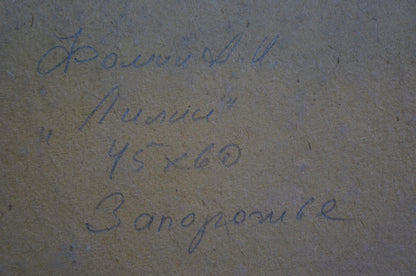 Фомин А. И
„Лилии"
45х60
Запорожье